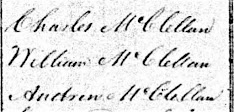 Charles McClellan
William McClellan
Andrew McClellan